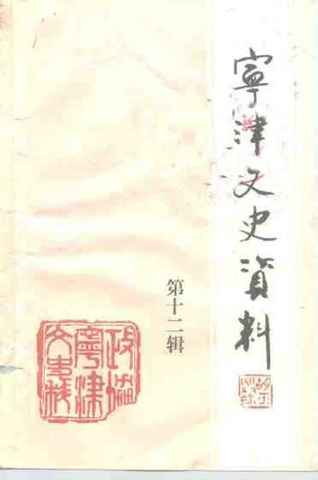 寧津文史資料
第十二辑
政协
寧津
文史